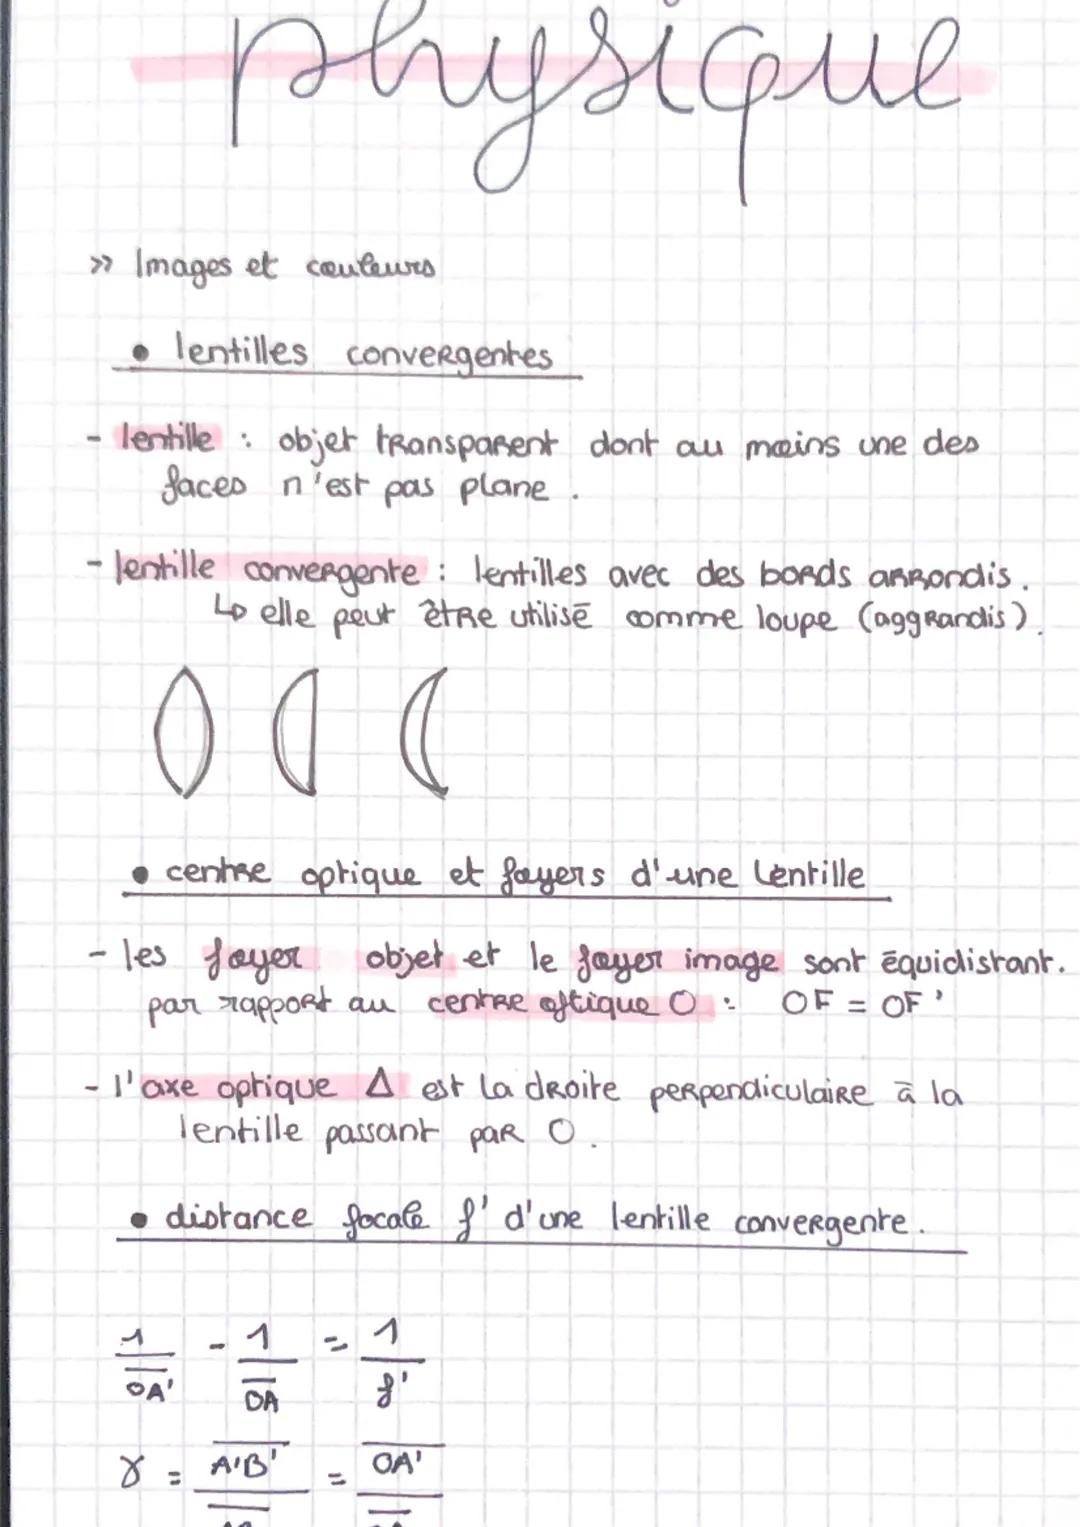 physique
>> Images et couleurs
• lentilles convergentes
- lentille : objet transparent dont au moins une des
faces n'est pas plane .
- lentille convergente : lentilles avec des bords arrondis .
↳ elle peut être utilisé comme loupe (aggrandis) .
• centre optique et foyers d'une lentille
- les foyer objet et le foyer image sont équidistant .
par rapport au centre oftique O : OF = OF'
- l'axe optique Δ est la droite perpendiculaire à la
lentille passant par O .
• distance focale f' d'une lentille convergente .
1/O̅A̅' - 1/O̅A̅ = 1/f'
γ = A̅'̅B̅'̅ / = O̅A̅'̅ /